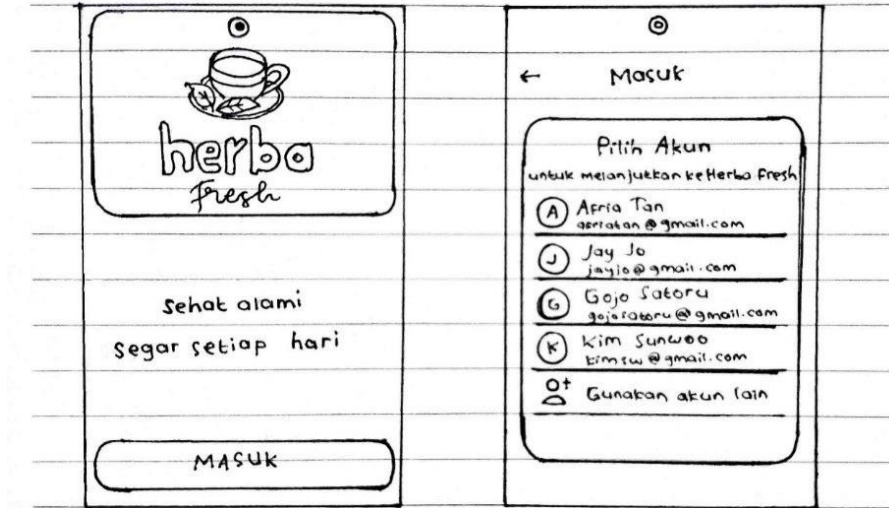 herba
Fresh
Sehat alami
Segar setiap hari
MASUK
← Masuk
Pilih Akun
untuk melanjutkan ke Herba Fresh
A Afria Tan
afriatan@gmail.com
J Jay Jo
jayjo@gmail.com
G Gojo Satoru
gojosatoru@gmail.com
K Kim Sunwoo
kimsw@gmail.com
Gunakan akun lain